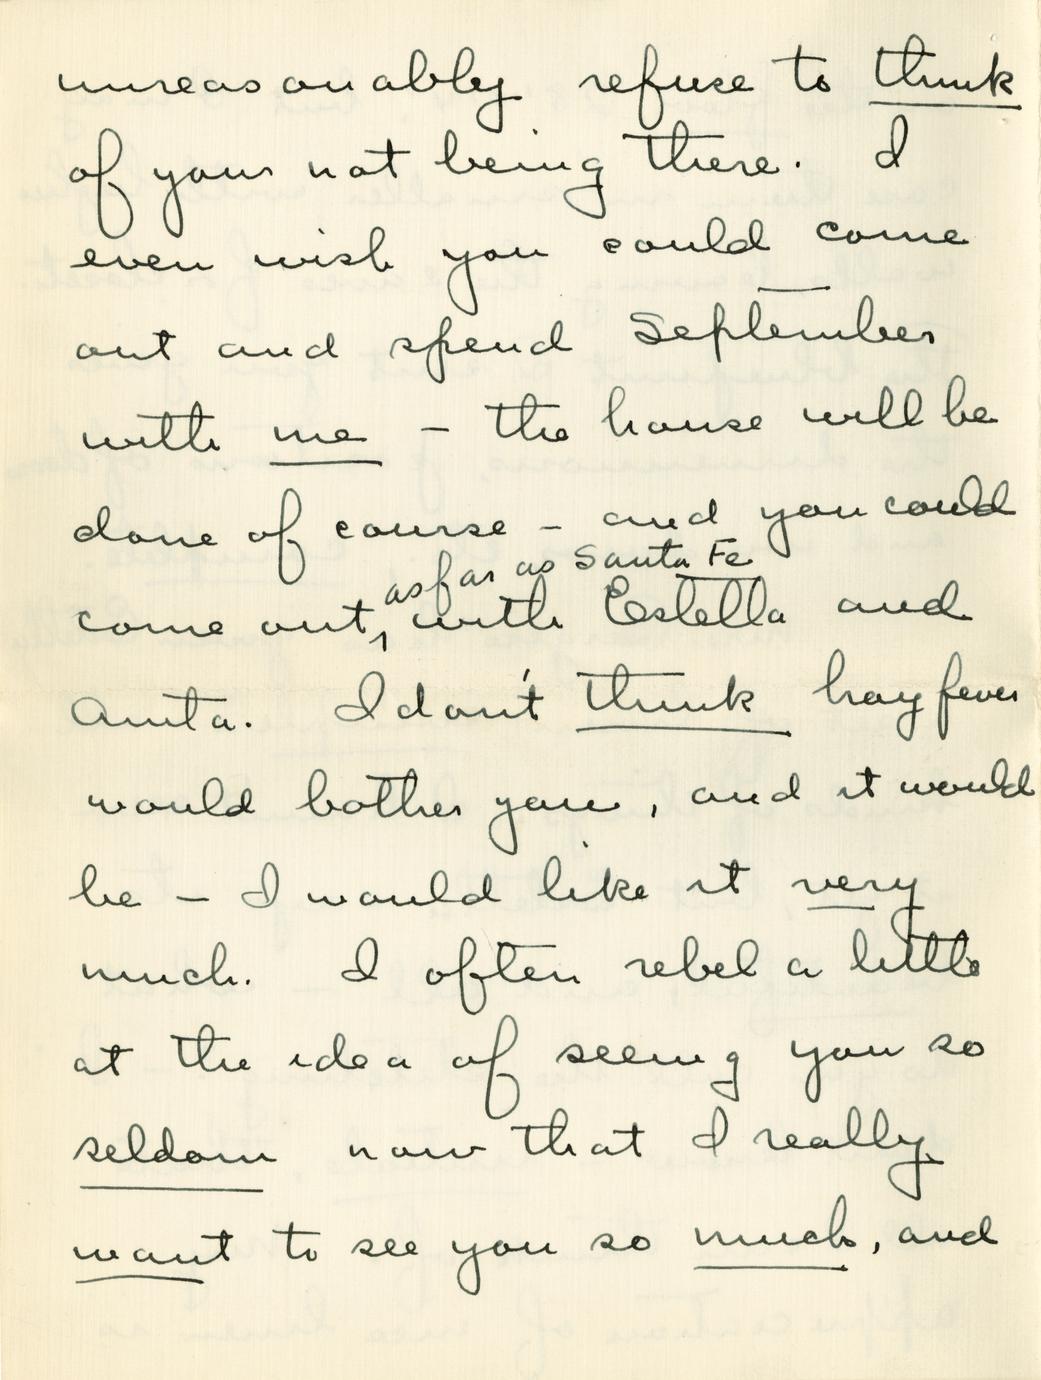 unreasonably refuse to think
of your not being there. I
even wish you could come
out and spend September
with me - the house will be
done of course - and you could
as far as Santa Fe
come out, with Estella and
Anita. I don't think hay fever
would bother you, and it would
be - I would like it very
much. I often rebel a little
at the idea of seeing you so
seldom now that I really
want to see you so much, and